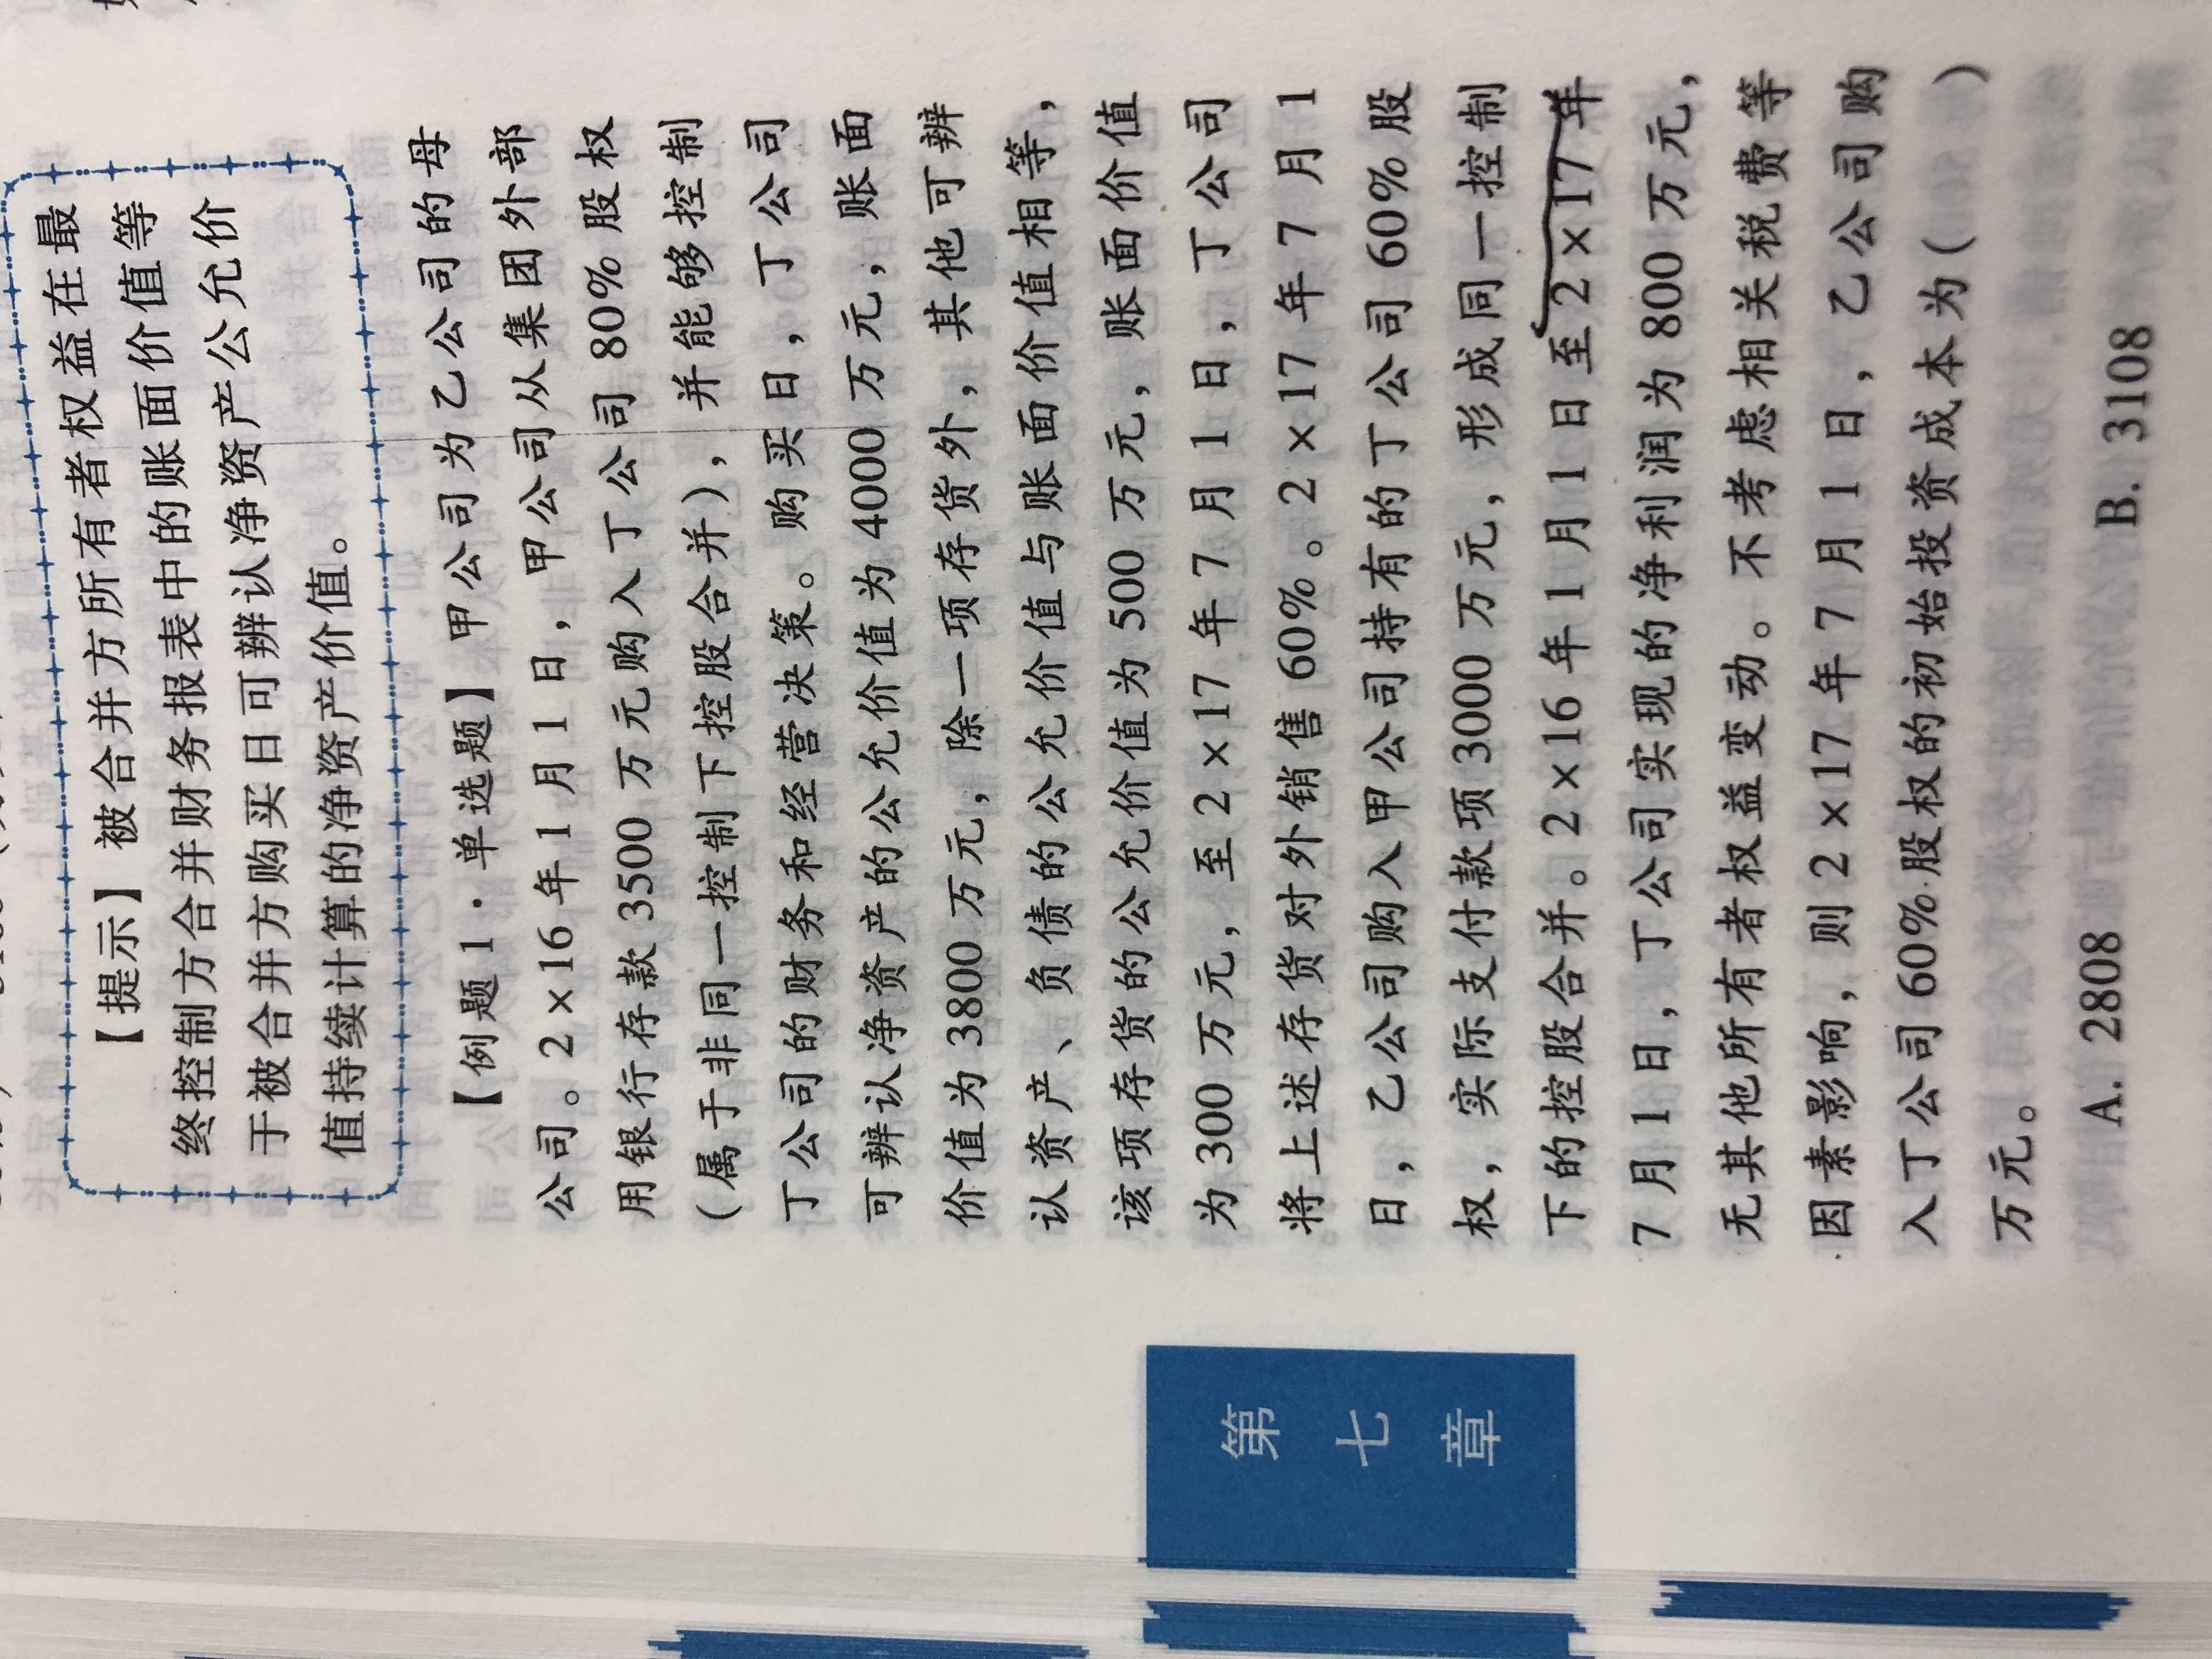 【提示】被合并方所有者权益在最
终控制方合并财务报表中的账面价值等
于被合并方购买日可辨认净资产公允价
值持续计算的净资产价值。
【例题1·单选题】甲公司为乙公司的母
公司。2×16年1月1日，甲公司从集团外部
用银行存款3500万元购入丁公司80%股权
（属于非同一控制下控股合并），并能够控制
丁公司的财务和经营决策。购买日，丁公司
可辨认净资产的公允价值为4000万元，账面
价值为3800万元，除一项存货外，其他可辨
认资产、负债的公允价值与账面价值相等，
该项存货的公允价值为500万元，账面价值
为300万元，至2×17年7月1日，丁公司
将上述存货对外销售60%。2×17年7月1
日，乙公司购入甲公司持有的丁公司60%股
权，实际支付款项3000万元，形成同一控制
下的控股合并。2×16年1月1日至2×17年
7月1日，丁公司实现的净利润为800万元，
无其他所有者权益变动。不考虑相关税费等
因素影响，则2×17年7月1日，乙公司购
入丁公司60%股权的初始投资成本为（ ）
万元。
A. 2808 B. 3108
第
七
章